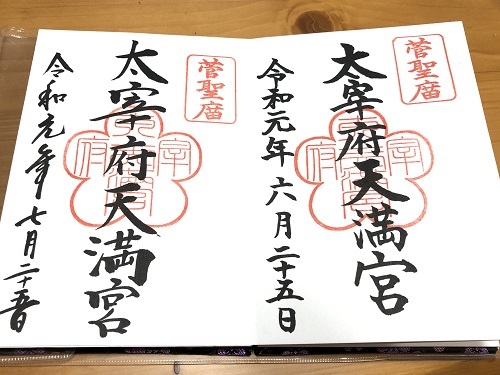 菅聖庿
太宰府天満宮
令和元年六月二十五日
菅聖庿
太宰府天満宮
令和元年七月二十五日